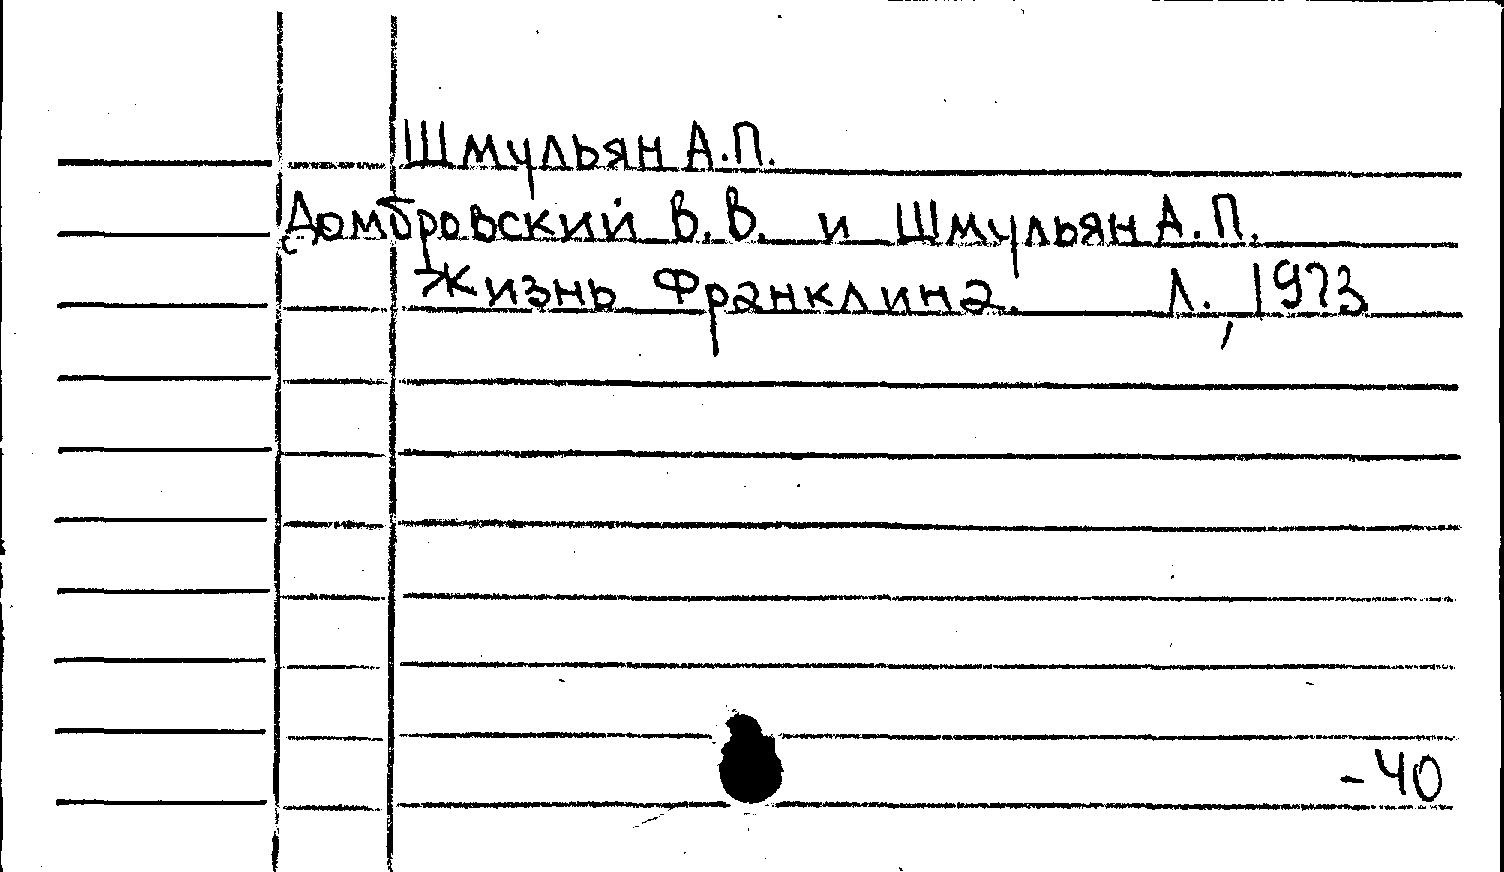 Шмульян А.П.
Домбровский В.В. и Шмульян А.П.
Жизнь Франклина. Л., 1973
-40